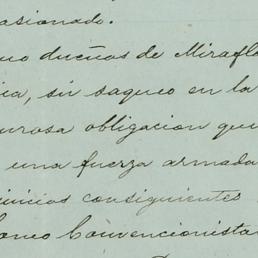 asionado.
mo dueños de Miraflo
ia, sin saqueo en la
urosa obligacion que
una fuerza armada
juicios consiguientes
Convencionista